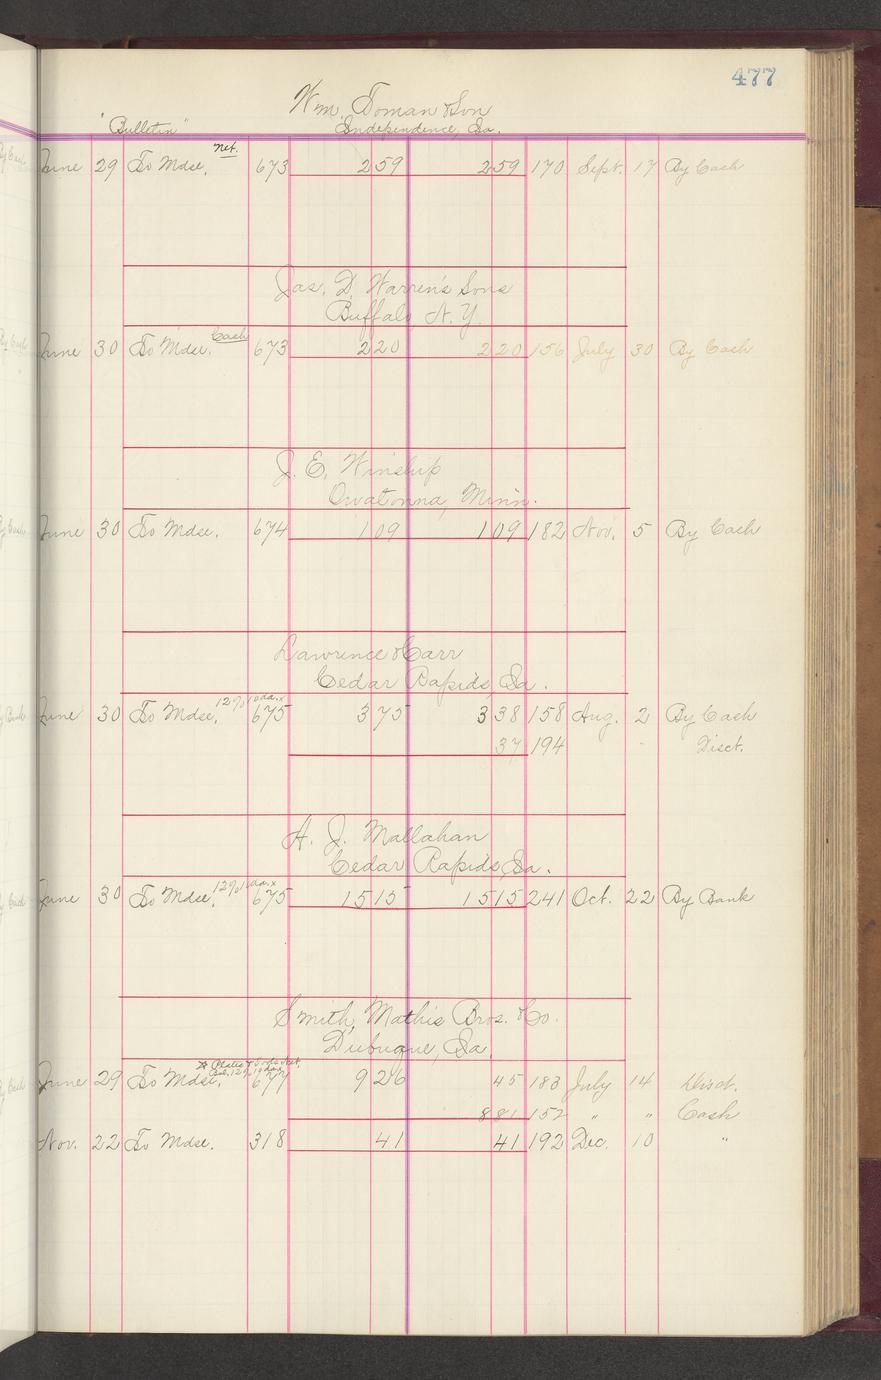 477
Wm. Toman & Son
"Bulletin" Independence, Ia.
net.
June 29 To Mdse. 673 259 259 170 Sept. 17 By Cash
Jas. D. Warren's Sons
Buffalo, N.Y.
Cash
June 30 To Mdse. 673 220 220 156 July 30 By Cash
J. E. Winship
Owatonna, Minn.
June 30 To Mdse. 674 109 109 182 Nov. 5 By Cash
Lawrence & Carr
Cedar Rapids, Ia.
June 30 To Mdse. 12% 10 da. x 675 375 338 158 Aug. 2 By Cash
37 194 Disct.
A. J. Mallahan
Cedar Rapids, Ia.
June 30 To Mdse. 12% 10 da. x 675 1515 1515 241 Oct. 22 By Bank
Smith, Mathis Bros. & Co.
Dubuque, Ia.
June 29 To Mdse. 677 926 45 183 July 14 Disct.
881 152 " " Cash
Nov. 22 To Mdse. 318 41 41 192 Dec. 10 "